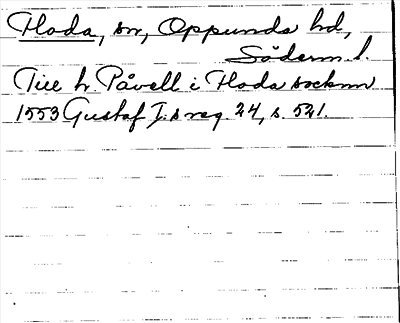 Floda, sn, Oppunda hd,
Söderm. l.
Till h. Påvell i Floda socknn
1553 Gustaf I:s reg. 24, s. 521.